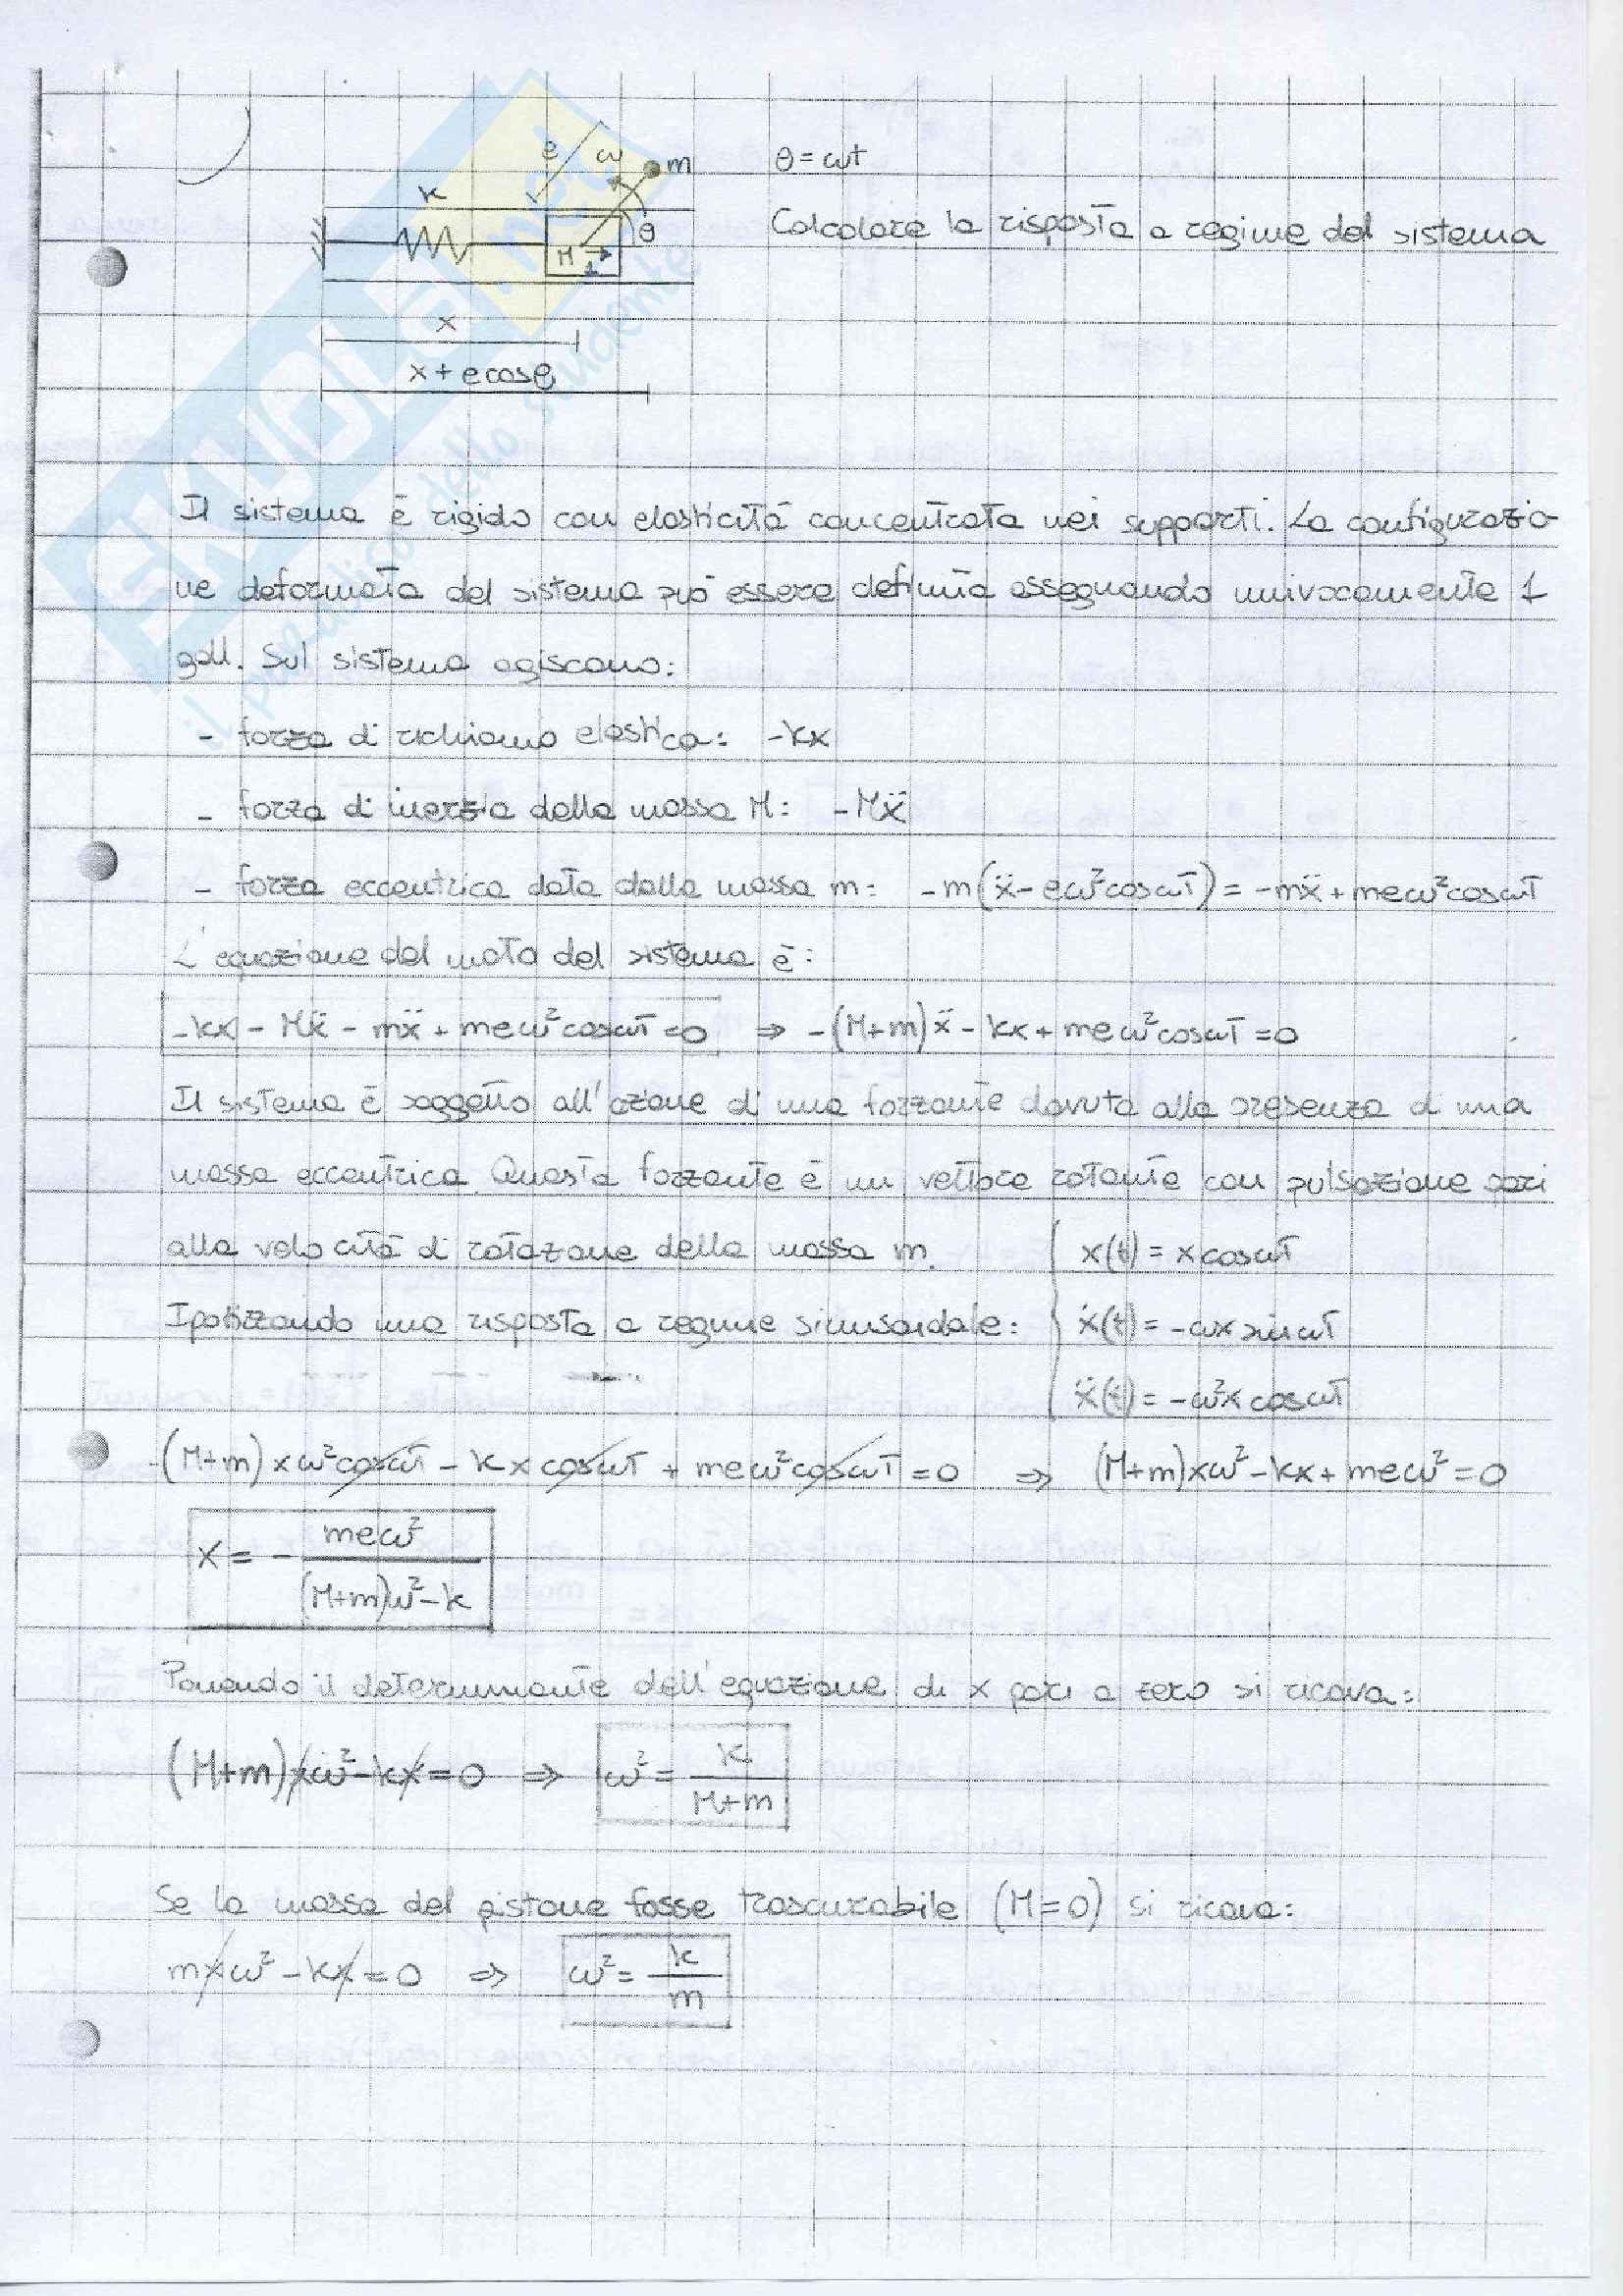 e
ω
m
θ = ωt
k
θ
Calcolare la risposta a regime del sistema
M
x
x + e cosθ
SKUOLA.net
il paradiso dello studente
Il sistema è rigido con elasticità concentrata nei supporti. La configurazio-
ne deformata del sistema può essere definita assegnando univocamente 1
gdl. Sul sistema agiscono:
- forza di richiamo elastica: -kx
- forza di inerzia della massa M: -Mẍ
- forza eccentrica data dalla massa m: -m(ẍ - eω²cosωt) = -mẍ + meω²cosωt
L'equazione del moto del sistema è:
-kx - Mẍ - mẍ + meω²cosωt = 0 ⇒ -(M+m)ẍ - kx + meω²cosωt = 0
Il sistema è soggetto all'azione di una forzante dovuta alla presenza di una
massa eccentrica. Questa forzante è un vettore rotante con pulsazione pari
alla velocità di rotazione della massa m.
x(t) = x cosωt
Ipotizzando una risposta a regime sinusoidale:
ẋ(t) = -ωx sinωt
ẍ(t) = -ω²x cosωt
(M+m)xω²cosωt - kx cosωt + meω²cosωt = 0 ⇒ (M+m)xω² - kx + meω² = 0
x = - meω² / (M+m)ω² - k
Ponendo il determinante dell'equazione di x pari a zero si ricava:
(M+m)xω² - kx = 0 ⇒ ω² = k / M+m
Se la massa del pistone fosse trascurabile (M = 0) si ricava:
mxω² - kx = 0 ⇒ ω² = k / m